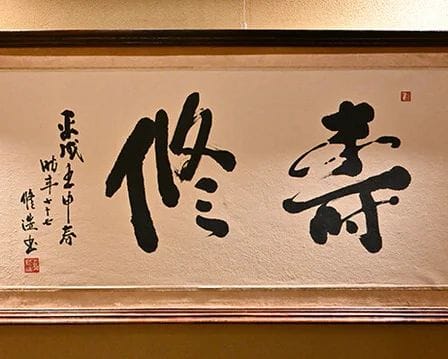 寿修
平成壬申春
時年七十七
修造書